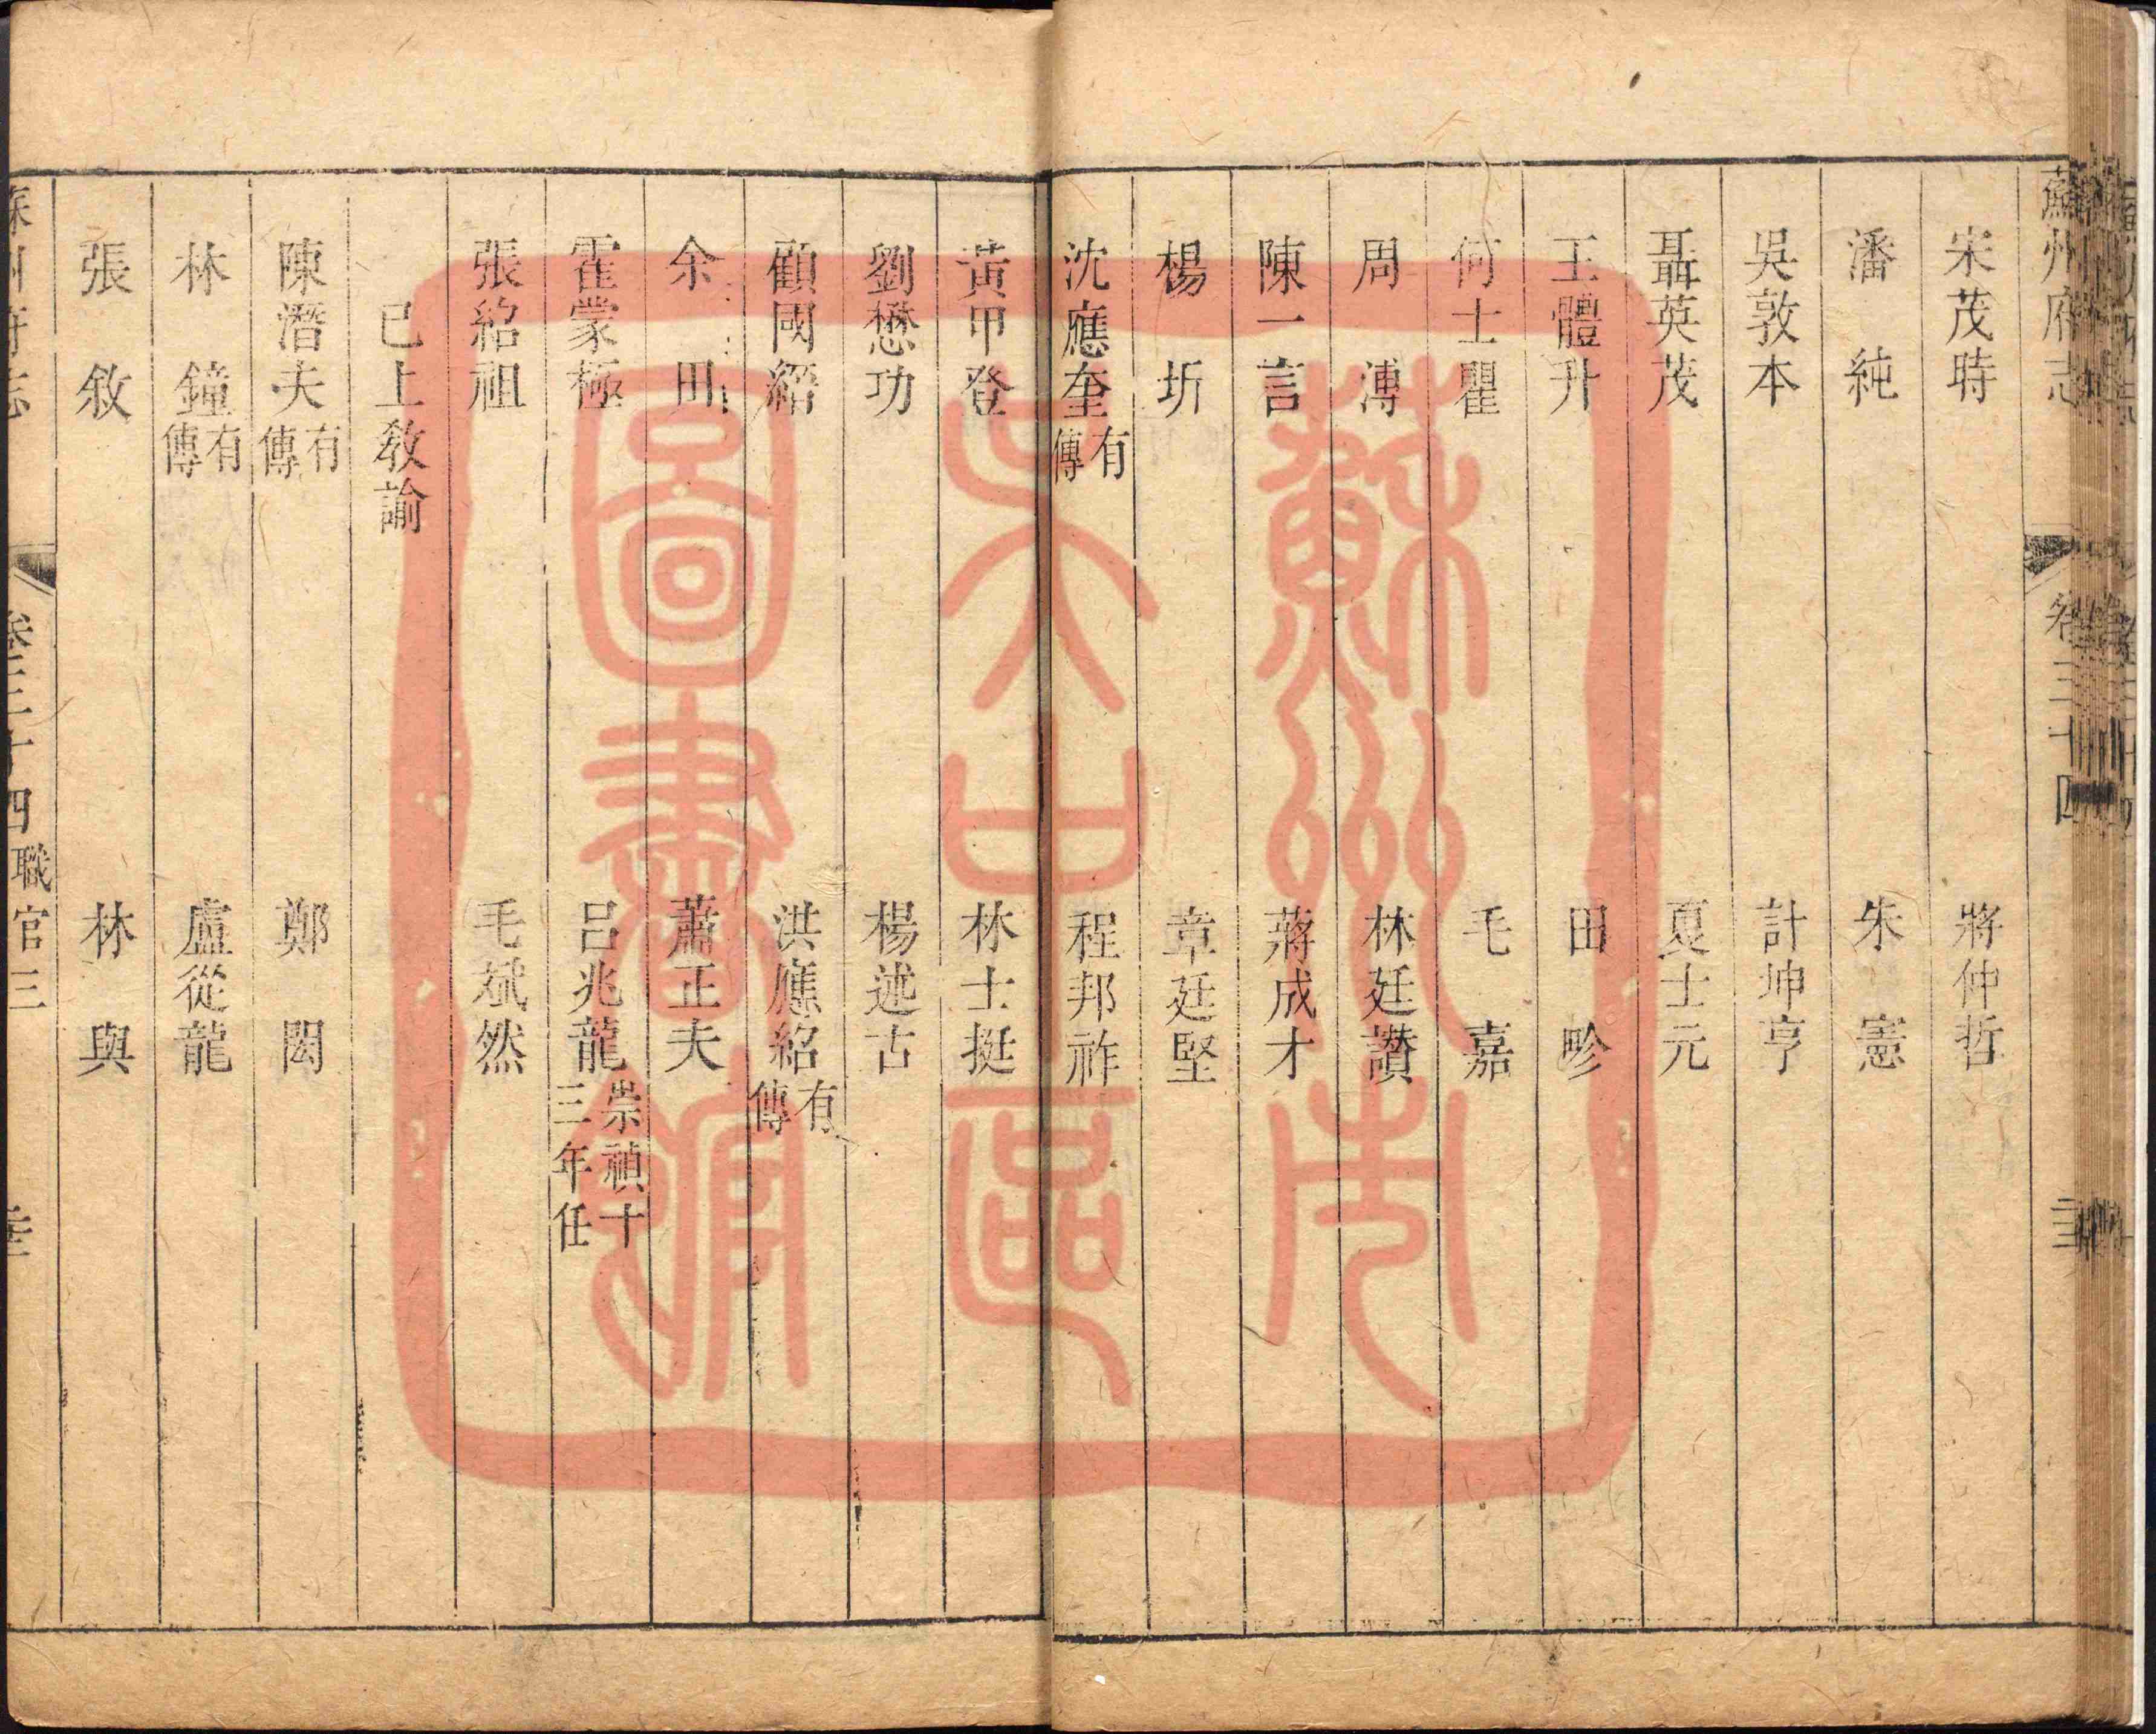 蘇州府志 卷三十四
宋茂時 將仲哲
潘純 朱憲
吳敦本 計坤亨
聶英茂 夏士元
王體升 田畛
何士瞿 毛嘉
周溥 林廷讚
陳一言 蔣成才
楊圻 章廷堅
沈應奎有傳 程邦祚
黃甲登 林士挺
劉懋功 楊述古
顧國紹 洪應紹有傳
余田 蕭正夫
霍蒙極 呂兆龍崇禎十三年任
張紹祖 毛斌然
已上教諭
陳潛夫有傳 鄭閎
林鐘有傳 盧從龍
張敘 林與
蘇州府志 卷三十四 職官三
蘇州市吳中區圖書館